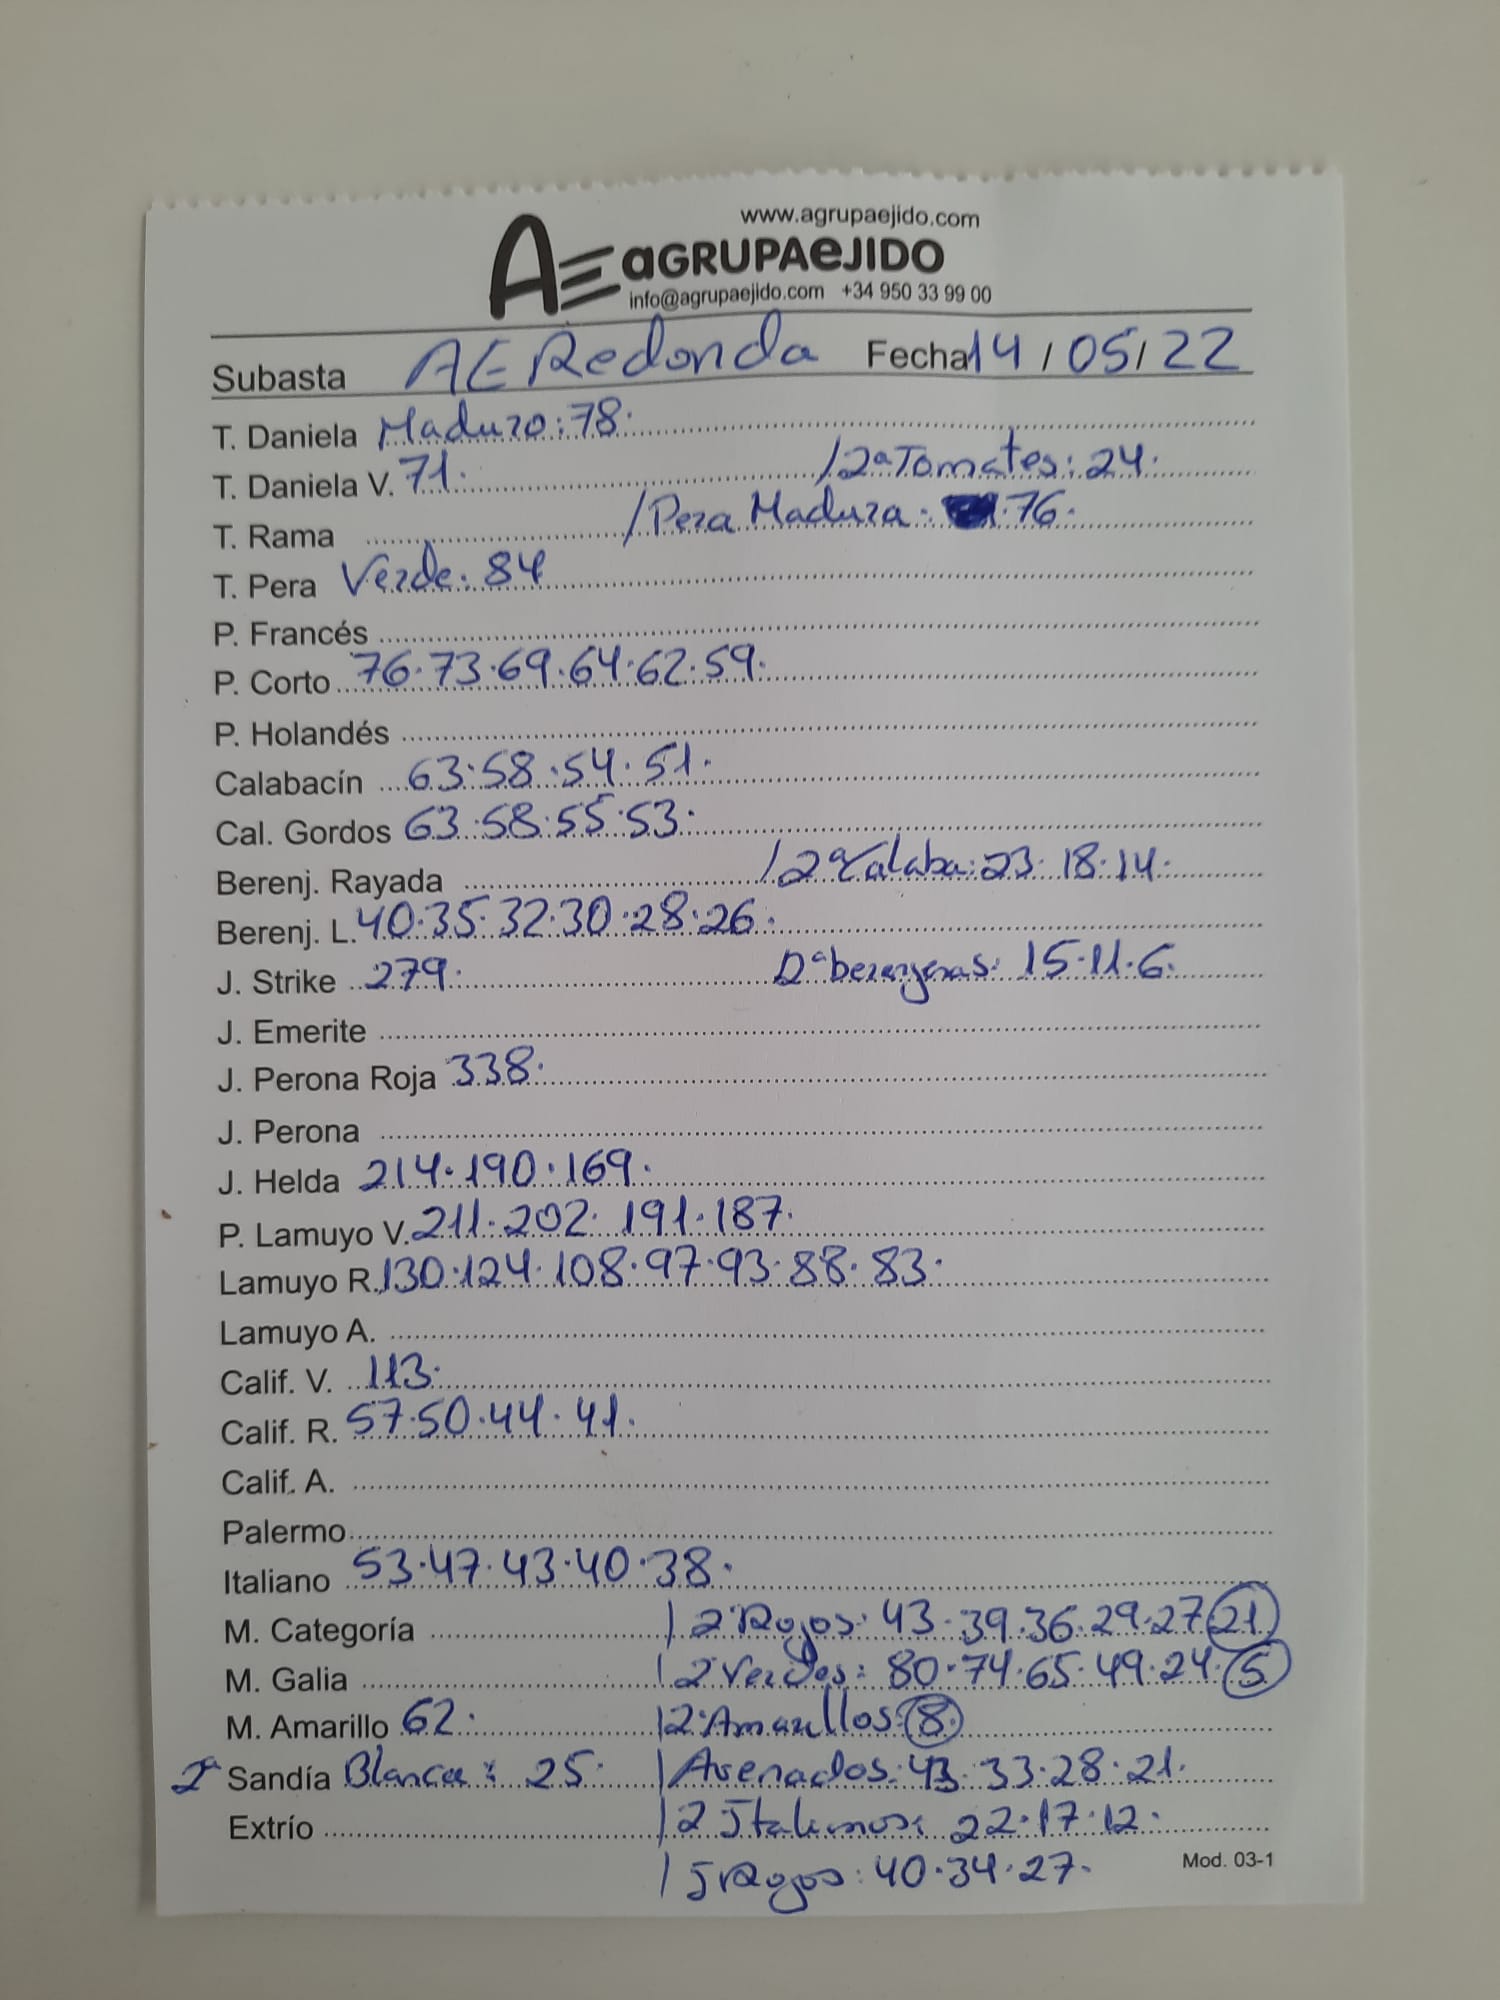 www.agrupaejido.com
AE aGRUPAeJIDO
info@agrupaejido.com +34 950 33 99 00
Subasta AE Redonda Fecha 14/05/22
T. Daniela Maduro: 78.
T. Daniela V. 71. /2ª Tomates: 24.
T. Rama /Pera Madura. 76.
T. Pera Verde. 84
P. Francés
P. Corto 76.73.69.64.62.59.
P. Holandés
Calabacín 63.58.54.51.
Cal. Gordos 63.58.55.53.
Berenj. Rayada /2ª Calaba: 23.18.14.
Berenj. L. 40.35.32.30.28.26.
J. Strike 279. Dª berenjenas: 15.11.6.
J. Emerite
J. Perona Roja 338.
J. Perona
J. Helda 214.190.169.
P. Lamuyo V. 211.202.191.187.
Lamuyo R. 130.124.108.97.93.88.83.
Lamuyo A.
Calif. V. 113.
Calif. R. 57.50.44.41.
Calif. A.
Palermo
Italiano 53.47.43.40.38.
M. Categoría /2 Rojos: 43.39.36.29.27 21
M. Galia /2 Verdes: 80.74.65.49.24. 5
M. Amarillo 62. /2 Amarillos: 8.
2ª Sandía Blanca: 25. /Asenados: 43.33.28.21.
Extrío /2 Italianos: 22.17.12.
/J Rojos: 40.34.27.
Mod. 03-1